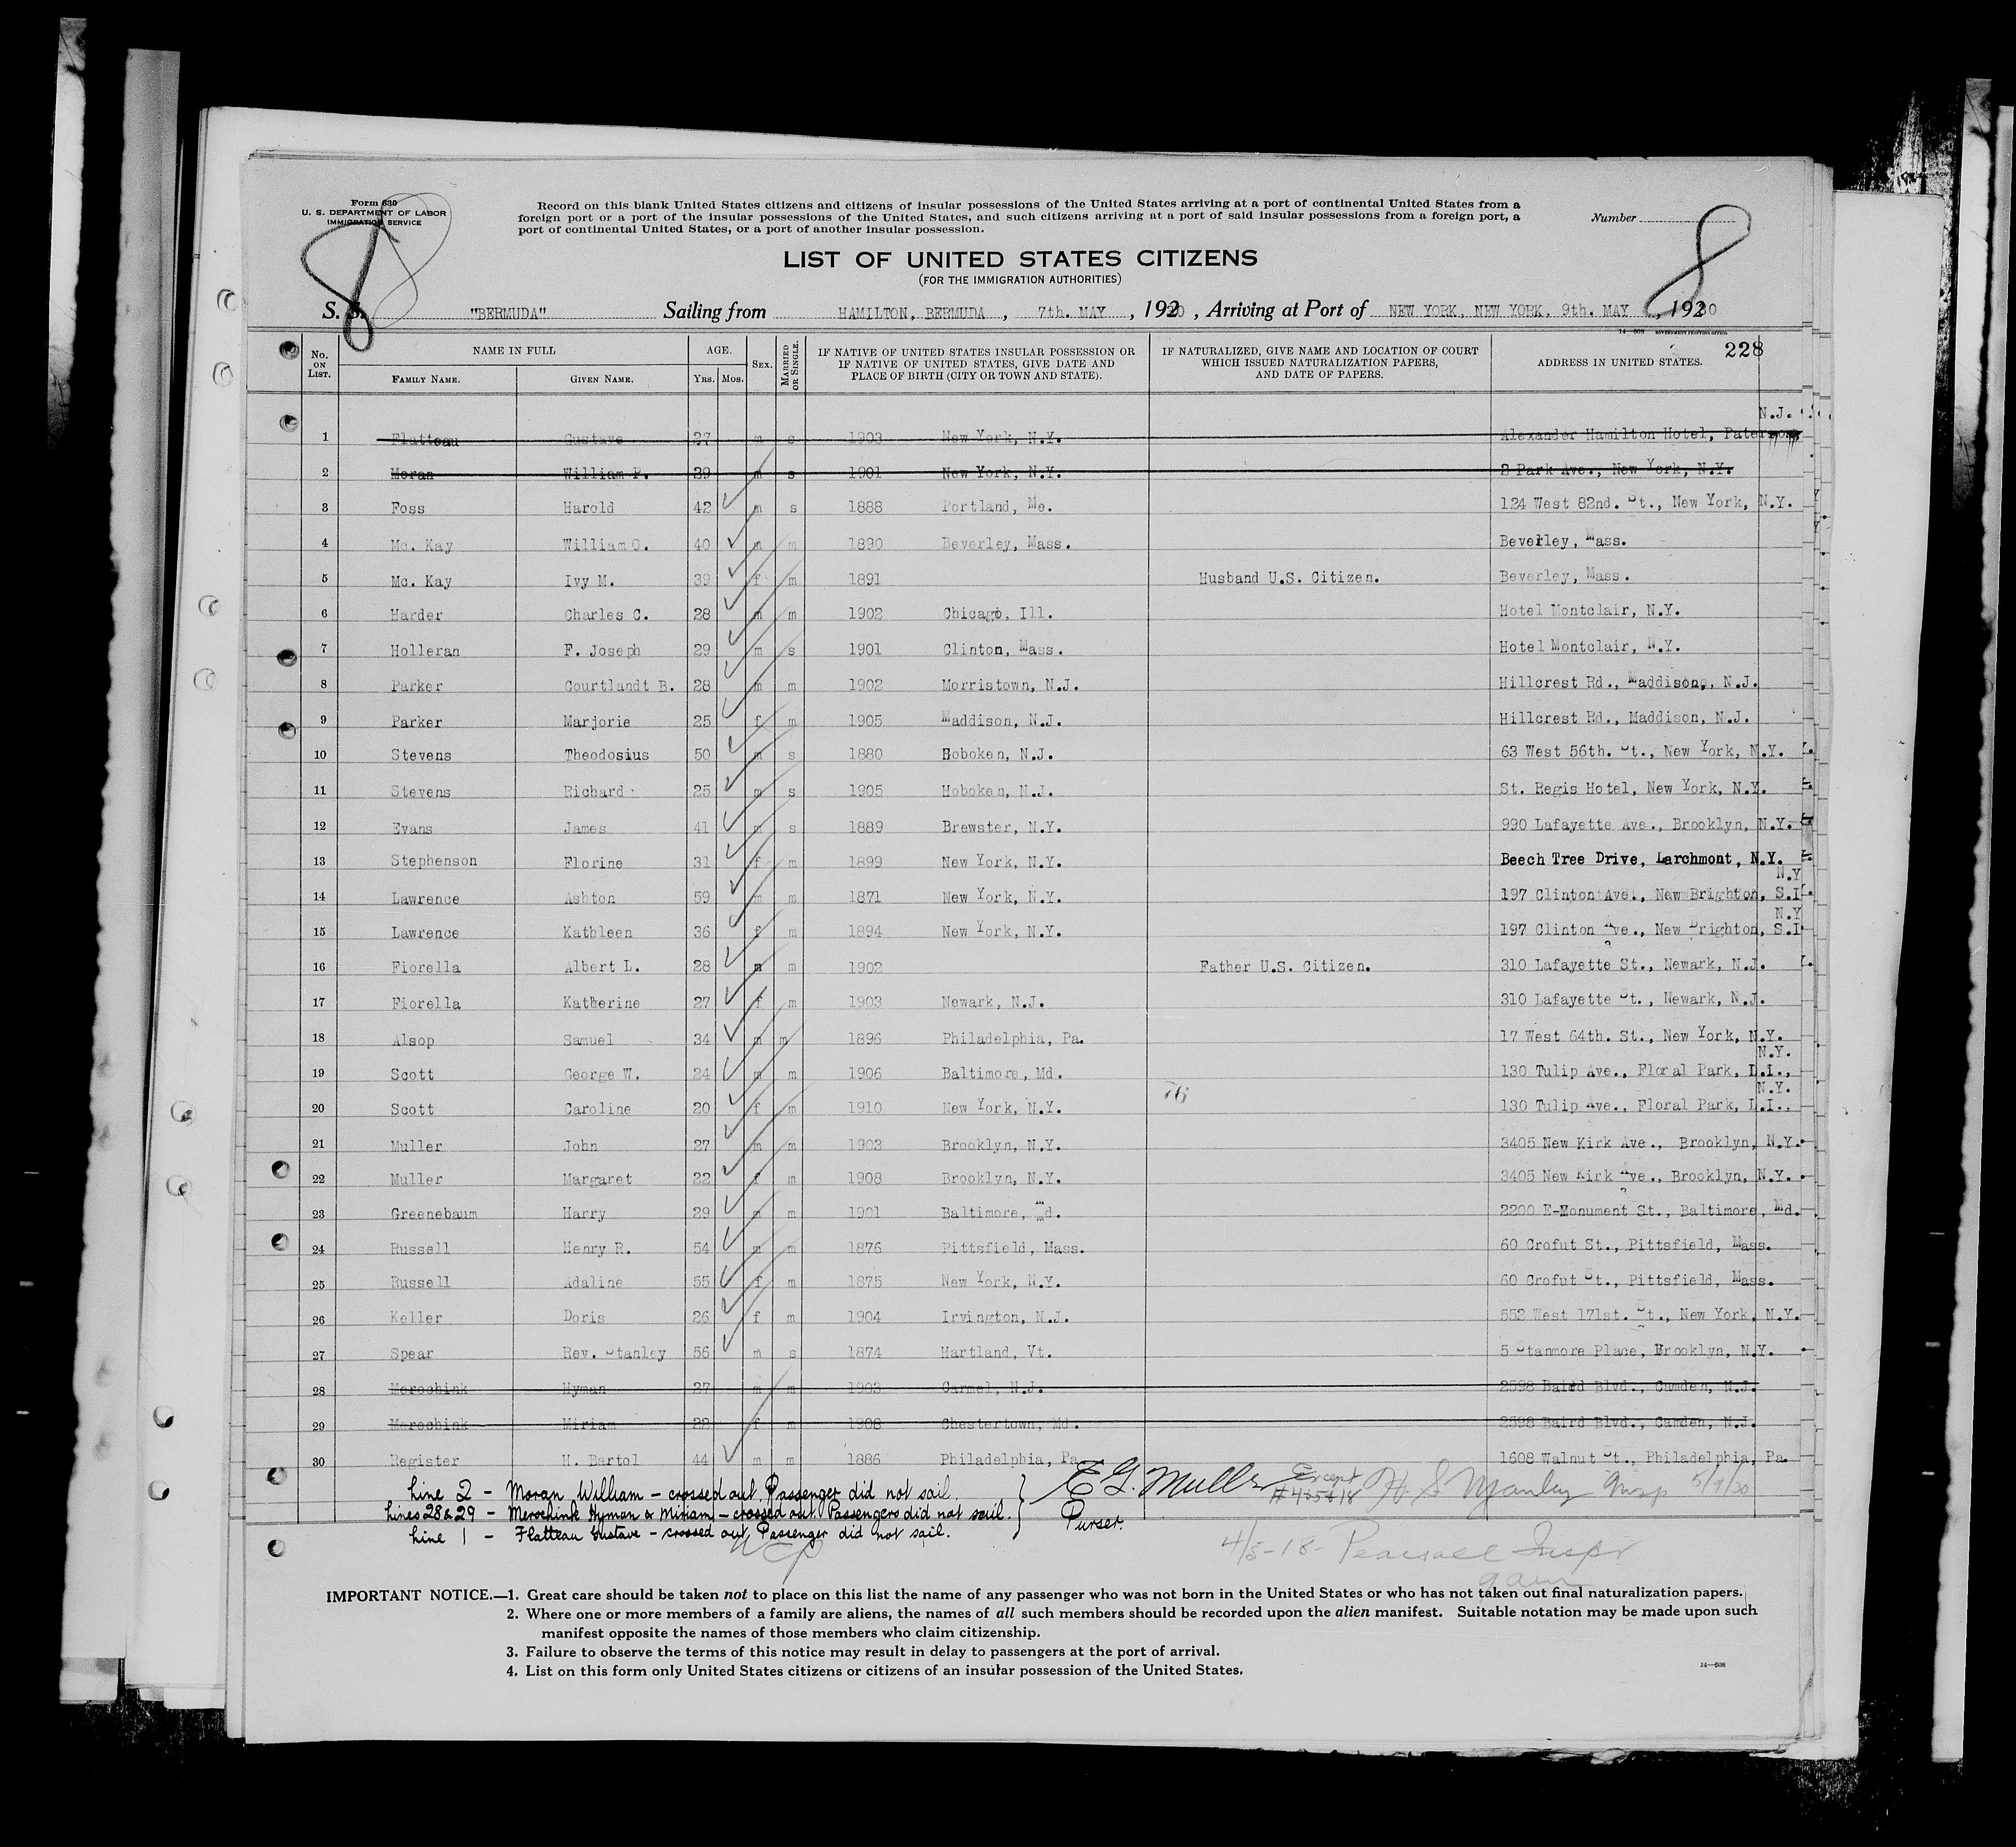 Form 630
U. S. DEPARTMENT OF LABOR
IMMIGRATION SERVICE
8
8
Record on this blank United States citizens and citizens of insular possessions of the United States arriving at a port of continental United States from a
foreign port or a port of the insular possessions of the United States, and such citizens arriving at a port of said insular possessions from a foreign port, a
port of continental United States, or a port of another insular possession.
Number
LIST OF UNITED STATES CITIZENS
(FOR THE IMMIGRATION AUTHORITIES)
S. S. "BERMUDA" Sailing from HAMILTON, BERMUDA , 7th. MAY , 1930 , Arriving at Port of NEW YORK, NEW YORK. 9th. MAY , 1930
14—608 GOVERNMENT PRINTING OFFICE
228
No. ON LIST. NAME IN FULL AGE. SEX. MARRIED OR SINGLE. IF NATIVE OF UNITED STATES INSULAR POSSESSION OR IF NATIVE OF UNITED STATES, GIVE DATE AND PLACE OF BIRTH (CITY OR TOWN AND STATE). IF NATURALIZED, GIVE NAME AND LOCATION OF COURT WHICH ISSUED NATURALIZATION PAPERS, AND DATE OF PAPERS. ADDRESS IN UNITED STATES.
FAMILY NAME. GIVEN NAME. YRS. MOS.
1 Flatteau Gustave 27 m s 1903 New York, N.Y. Alexander Hamilton Hotel, Paterson, N.J.
2 Moran William P. 29 m s 1901 New York, N.Y. 2 Park Ave., New York, N.Y.
3 Foss Harold 42 m s 1888 Portland, Me. 124 West 82nd. St., New York, N.Y.
4 Mc. Kay William O. 40 m m 1890 Beverley, Mass. Beverley, Mass.
5 Mc. Kay Ivy M. 39 f m 1891 Husband U.S. Citizen. Beverley, Mass.
6 Harder Charles C. 28 m m 1902 Chicago, Ill. Hotel Montclair, N.Y.
7 Holleran F. Joseph 29 m s 1901 Clinton, Mass. Hotel Montclair, N.Y.
8 Parker Courtlandt B. 28 m m 1902 Morristown, N.J. Hillcrest Rd., Maddison, N.J.
9 Parker Marjorie 25 f m 1905 Maddison, N.J. Hillcrest Rd., Maddison, N.J.
10 Stevens Theodosius 50 m s 1880 Hoboken, N.J. 63 West 56th. St., New York, N.Y.
11 Stevens Richard 25 m s 1905 Hoboken, N.J. St. Regis Hotel, New York, N.Y.
12 Evans James 41 m s 1889 Brewster, N.Y. 990 Lafayette Ave., Brooklyn, N.Y.
13 Stephenson Florine 31 f m 1899 New York, N.Y. Beech Tree Drive, Larchmont, N.Y.
14 Lawrence Ashton 59 m m 1871 New York, N.Y. 197 Clinton Ave., New Brighton, S.I. N.Y
15 Lawrence Kathleen 36 f m 1894 New York, N.Y. 197 Clinton Ave., New Brighton, S.I N.Y
16 Fiorella Albert L. 28 m m 1902 Father U.S. Citizen. 310 Lafayette St., Newark, N.J.
17 Fiorella Katherine 27 f m 1903 Newark, N.J. 310 Lafayette St., Newark, N.J.
18 Alsop Samuel 34 m m 1896 Philadelphia, Pa. 17 West 64th. St., New York, N.Y.
19 Scott George W. 24 m m 1906 Baltimore, Md. 130 Tulip Ave., Floral Park, L.I., N.Y.
76
20 Scott Caroline 20 f m 1910 New York, N.Y. 130 Tulip Ave., Floral Park, L.I., N.Y.
21 Muller John 27 m m 1903 Brooklyn, N.Y. 3405 New Kirk Ave., Brooklyn, N.Y.
22 Muller Margaret 22 f m 1908 Brooklyn, N.Y. 3405 New Kirk Ave., Brooklyn, N.Y.
23 Greenebaum Harry 29 m m 1901 Baltimore, Md. 2200 E-Monument St., Baltimore, Md.
24 Russell Henry R. 54 m m 1876 Pittsfield, Mass. 60 Crofut St., Pittsfield, Mass.
25 Russell Adaline 55 f m 1875 New York, N.Y. 60 Crofut St., Pittsfield, Mass.
26 Keller Doris 26 f m 1904 Irvington, N.J. 552 West 171st. St., New York, N.Y.
27 Spear Rev. Stanley 56 m s 1874 Hartland, Vt. 5 Stanmore Place, Brooklyn, N.Y.
28 Merochink Hyman 27 m m 1903 Carmel, N.J. 2598 Baird Blvd., Camden, N.J.
29 Merochink Miriam 22 f m 1908 Chestertown, Md. 2598 Baird Blvd., Camden, N.J.
30 Register H. Bartol 44 m m 1886 Philadelphia, Pa. 1608 Walnut St., Philadelphia, Pa.
Line 2 - Moran William - crossed out. Passenger did not sail.
Lines 28 & 29 - Merochink Hyman & Miriam - crossed out. Passengers did not sail.
Line 1 - Flatteau Gustave - crossed out, Passenger did not sail.
E G. Muller
Purser.
Except
H. S Manley Insp 5/9/30
4/5-18- Pearsall Inspr
IMPORTANT NOTICE.—1. Great care should be taken not to place on this list the name of any passenger who was not born in the United States or who has not taken out final naturalization papers.
2. Where one or more members of a family are aliens, the names of all such members should be recorded upon the alien manifest. Suitable notation may be made upon such
manifest opposite the names of those members who claim citizenship.
3. Failure to observe the terms of this notice may result in delay to passengers at the port of arrival.
4. List on this form only United States citizens or citizens of an insular possession of the United States.
14—608